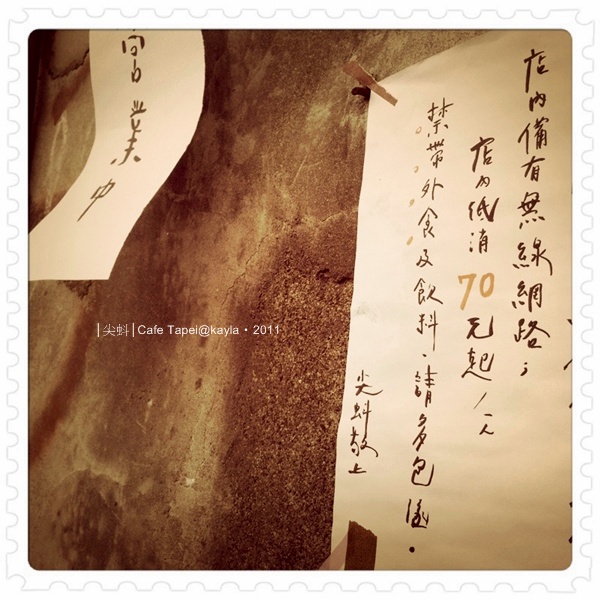 店內備有無線網路；
店內低消70元起/人
禁帶外食及飲料、請多包涵。
尖蚪敬上
營業中
|尖蚪|Cafe Tapei@kayla・2011